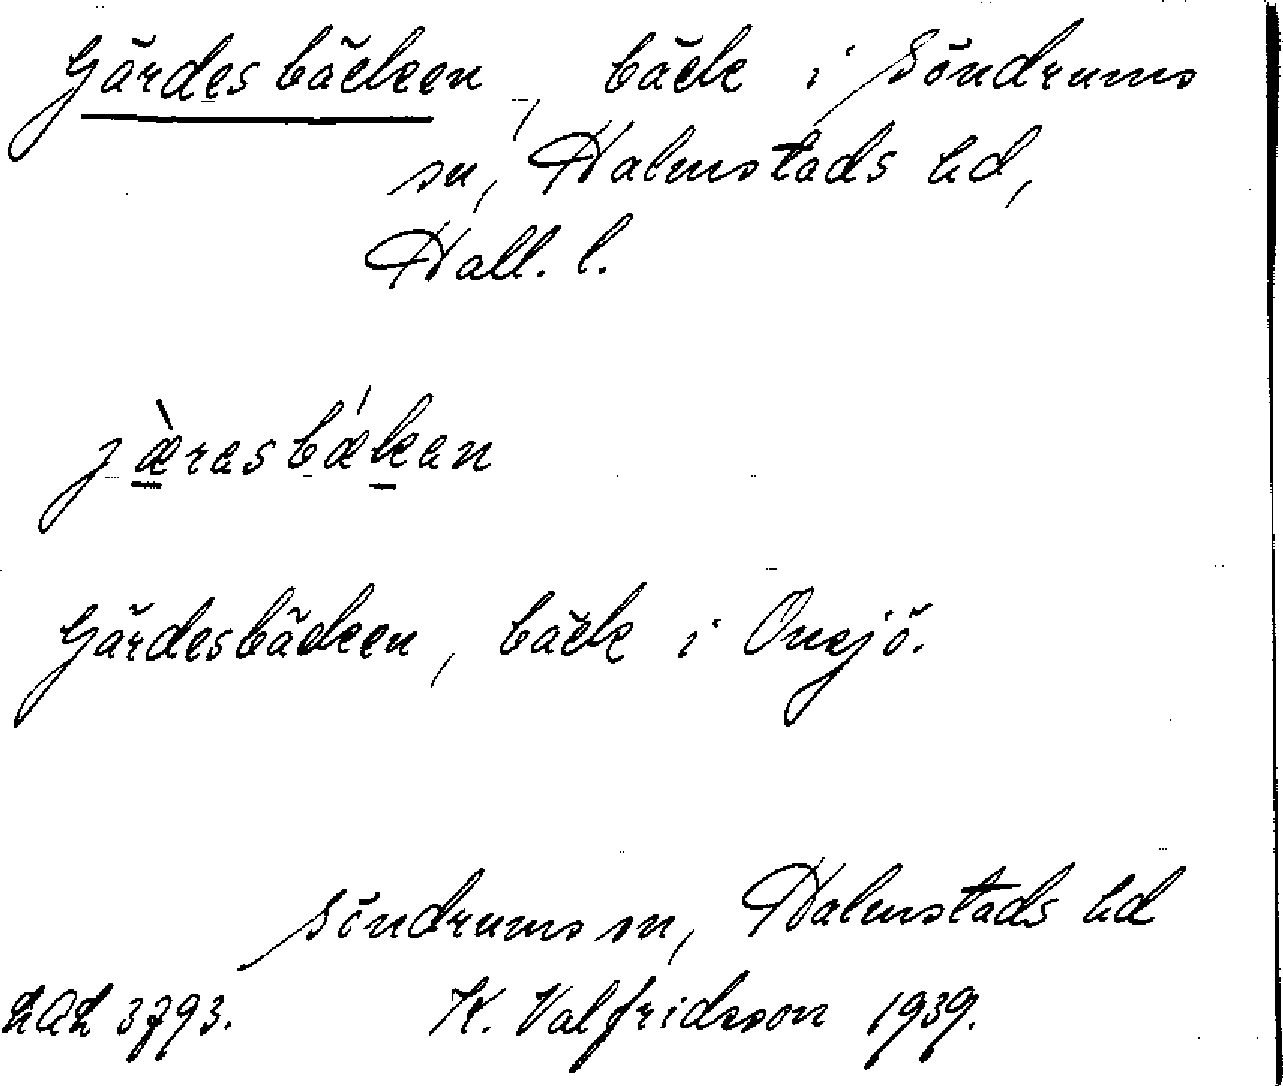 Gärdesbäcken, bäck i Söndrums
sn, Halmstads hd,
Hall. l.
jæ̀rasbækan
Gärdesbäcken, bäck i Onsjö.
Söndrums sn, Halmstads hd
3793. K. Valfridsson 1939.